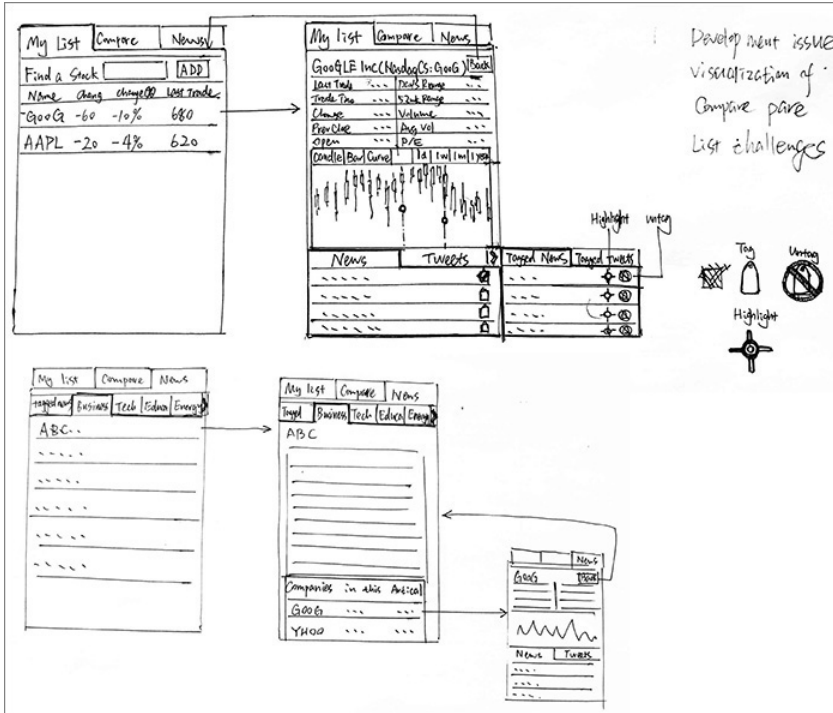 My List Compare News
Find a Stock ADD
Name Chang change(%) Last Trade
GooG -60 -10% 680
AAPL -20 -4% 620
My list Compare News
GooGLE Inc (NasdaqCs: GooG) Back
Last Trade Day's Range
Trade Time 52wk Range
Change Volume
Prev Close Avg Vol
Open P/E
Candle Bar Curve 1d 1w 1m 1year
News Tweets
Tagged News Tagged Tweets
Highlight untag
Development issue
visualization of
Compare pare
List challenges
Tag Untag
Highlight
My list Compare News
tagged news Business Tech Educa Energy
ABC
My list Compare News
Tagged Business Tech Educa Energy
ABC
Companies in this Artical
GOOG
YHOO
News
GooG Back
News Tweets